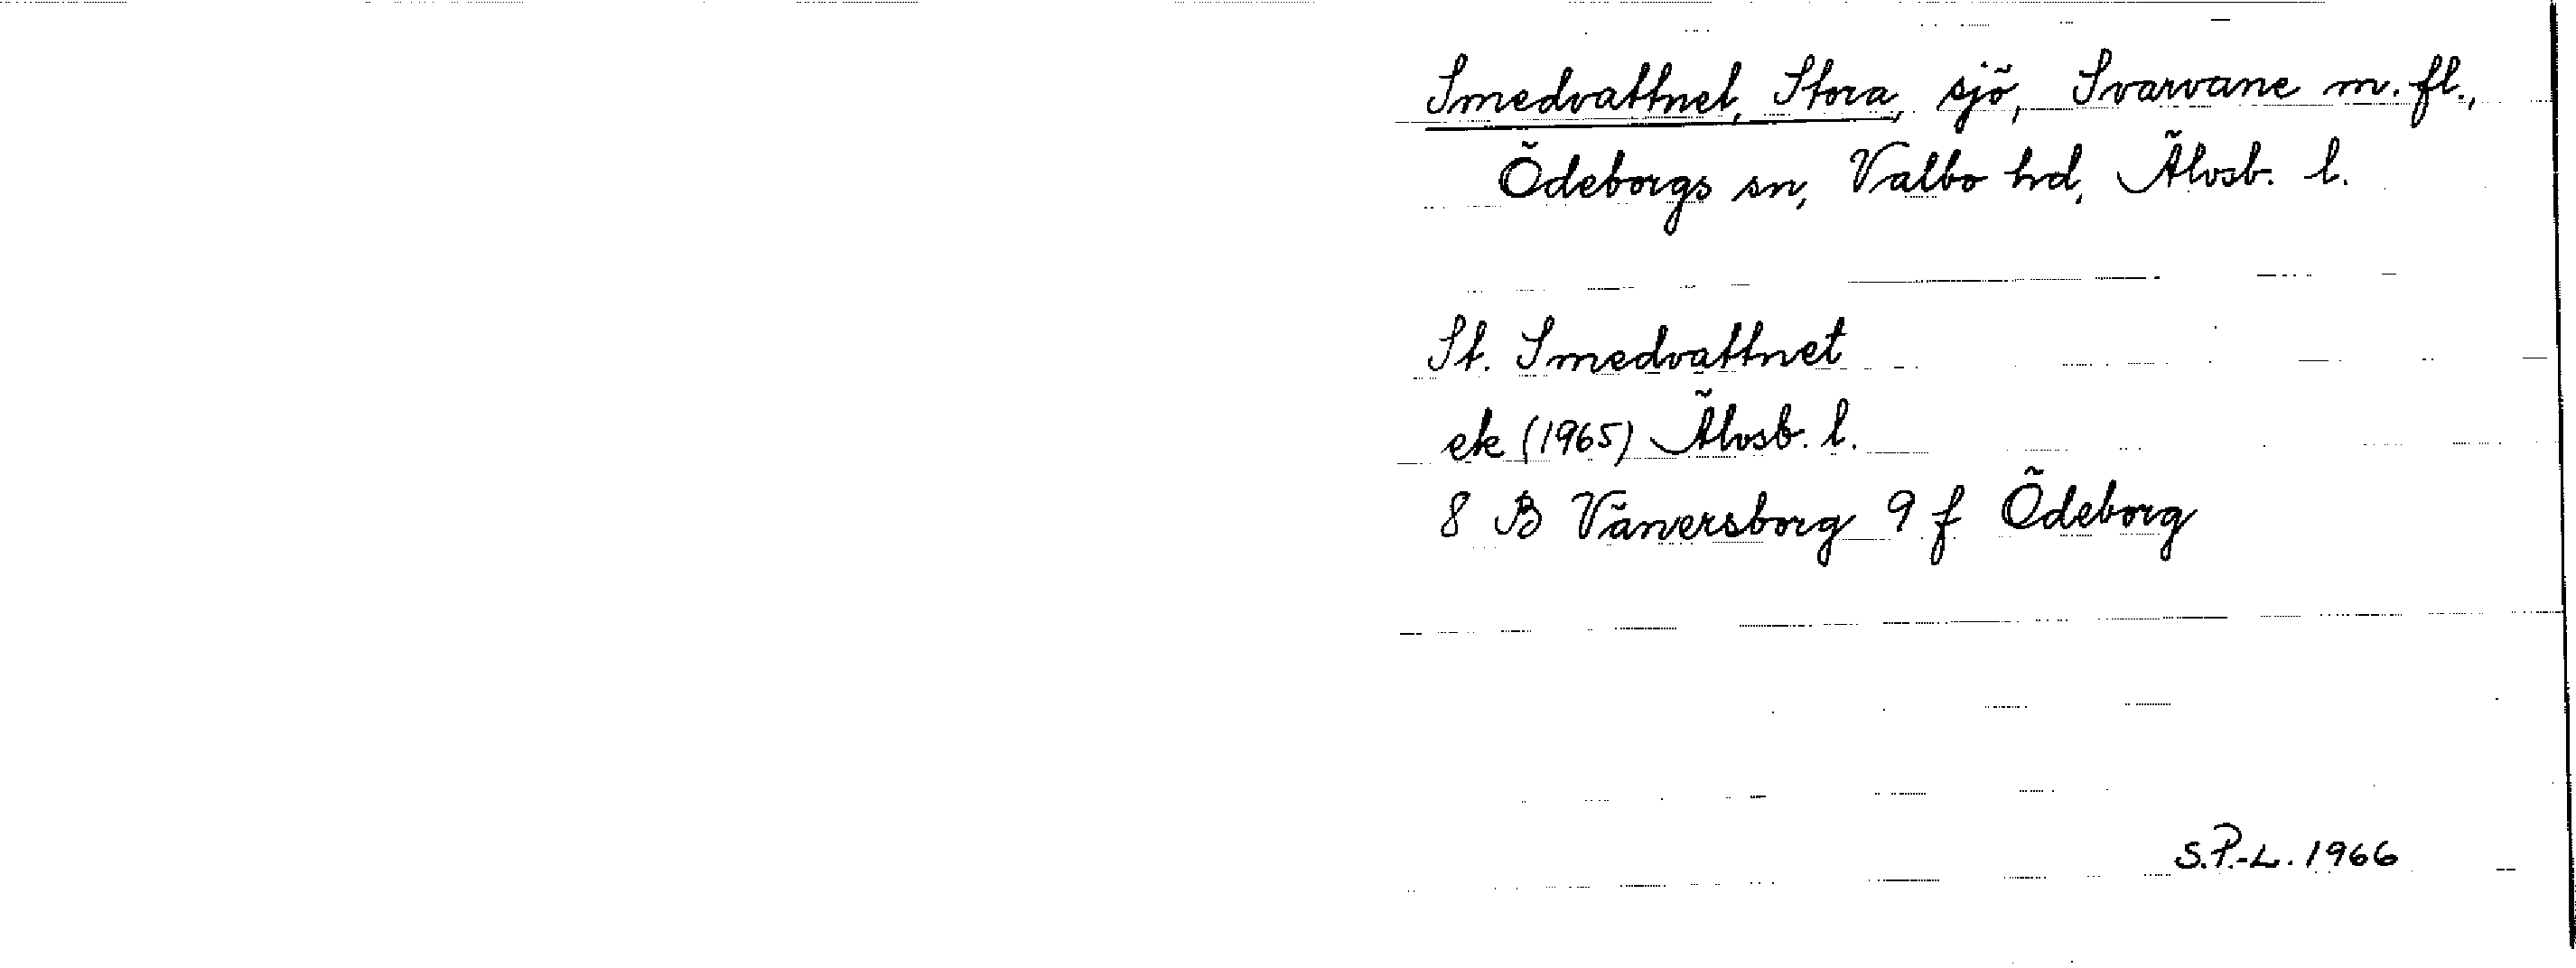 Smedvattnet, Stora, sjö, Svarvane m. fl.,
Ödeborgs sn, Valbo hd, Älvsb. l.
St. Smedvattnet
ek (1965) Älvsb. l.
8 B Vänersborg 9 f Ödeborg
S.P.-L. 1966